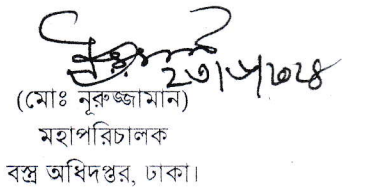 ২৩/৬/২০২৪
(মোঃ নূরুজ্জামান)
মহাপরিচালক
বস্ত্র অধিদপ্তর, ঢাকা।